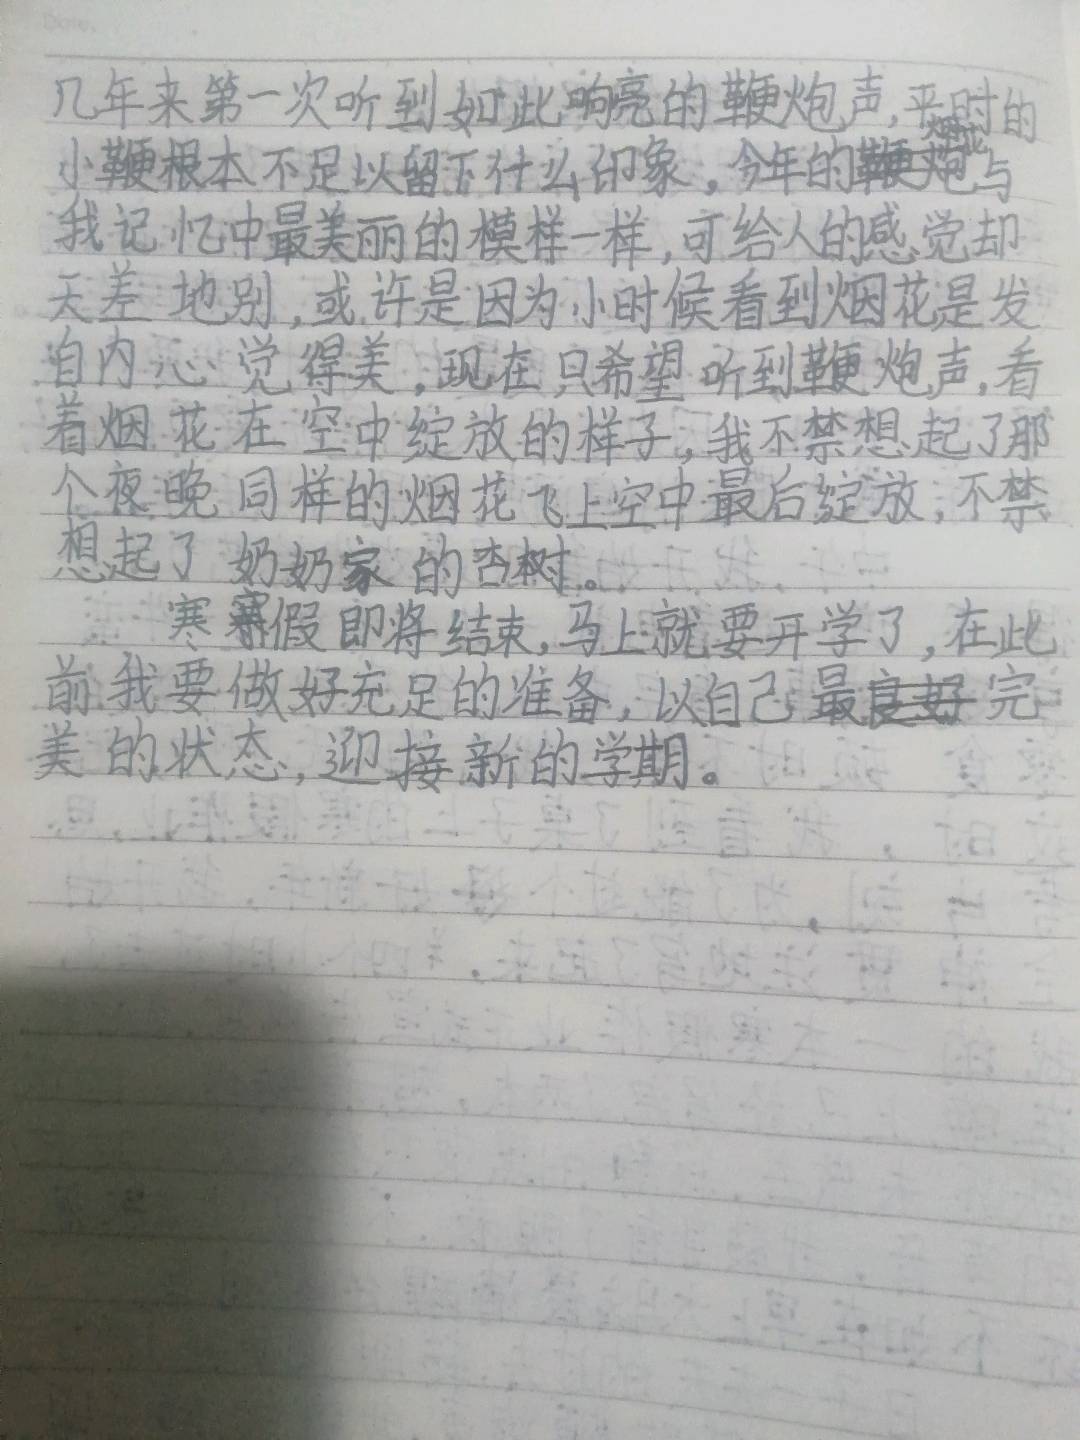 几年来第一次听到如此响亮的鞭炮声,平时的
小鞭根本不足以留下什么印象,今年的烟花与
我记忆中最美丽的模样一样,可给人的感觉却
天差地别,或许是因为小时候看到烟花是发
自内心觉得美,现在只希望听到鞭炮声,看
着烟花在空中绽放的样子,我不禁想起了那
个夜晚同样的烟花飞上空中最后绽放,不禁
想起了奶奶家的杏树。
寒假即将结束,马上就要开学了,在此
前我要做好充足的准备,以自己最完
美的状态,迎接新的学期。